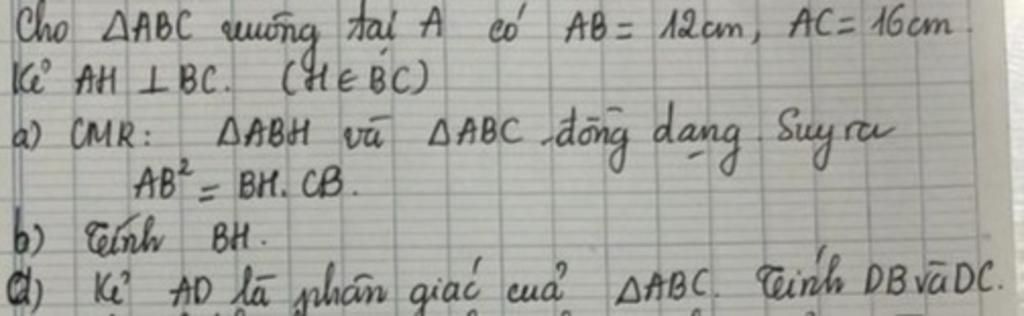 Cho ΔABC vuông tại A có AB = 12cm, AC = 16cm.
Kẻ AH ⊥ BC. (H ∈ BC)
a) CMR: ΔABH và ΔABC đồng dạng. Suy ra
AB² = BH. CB.
b) Tính BH.
d) Kẻ AD là phân giác của ΔABC. Tính DB và DC.